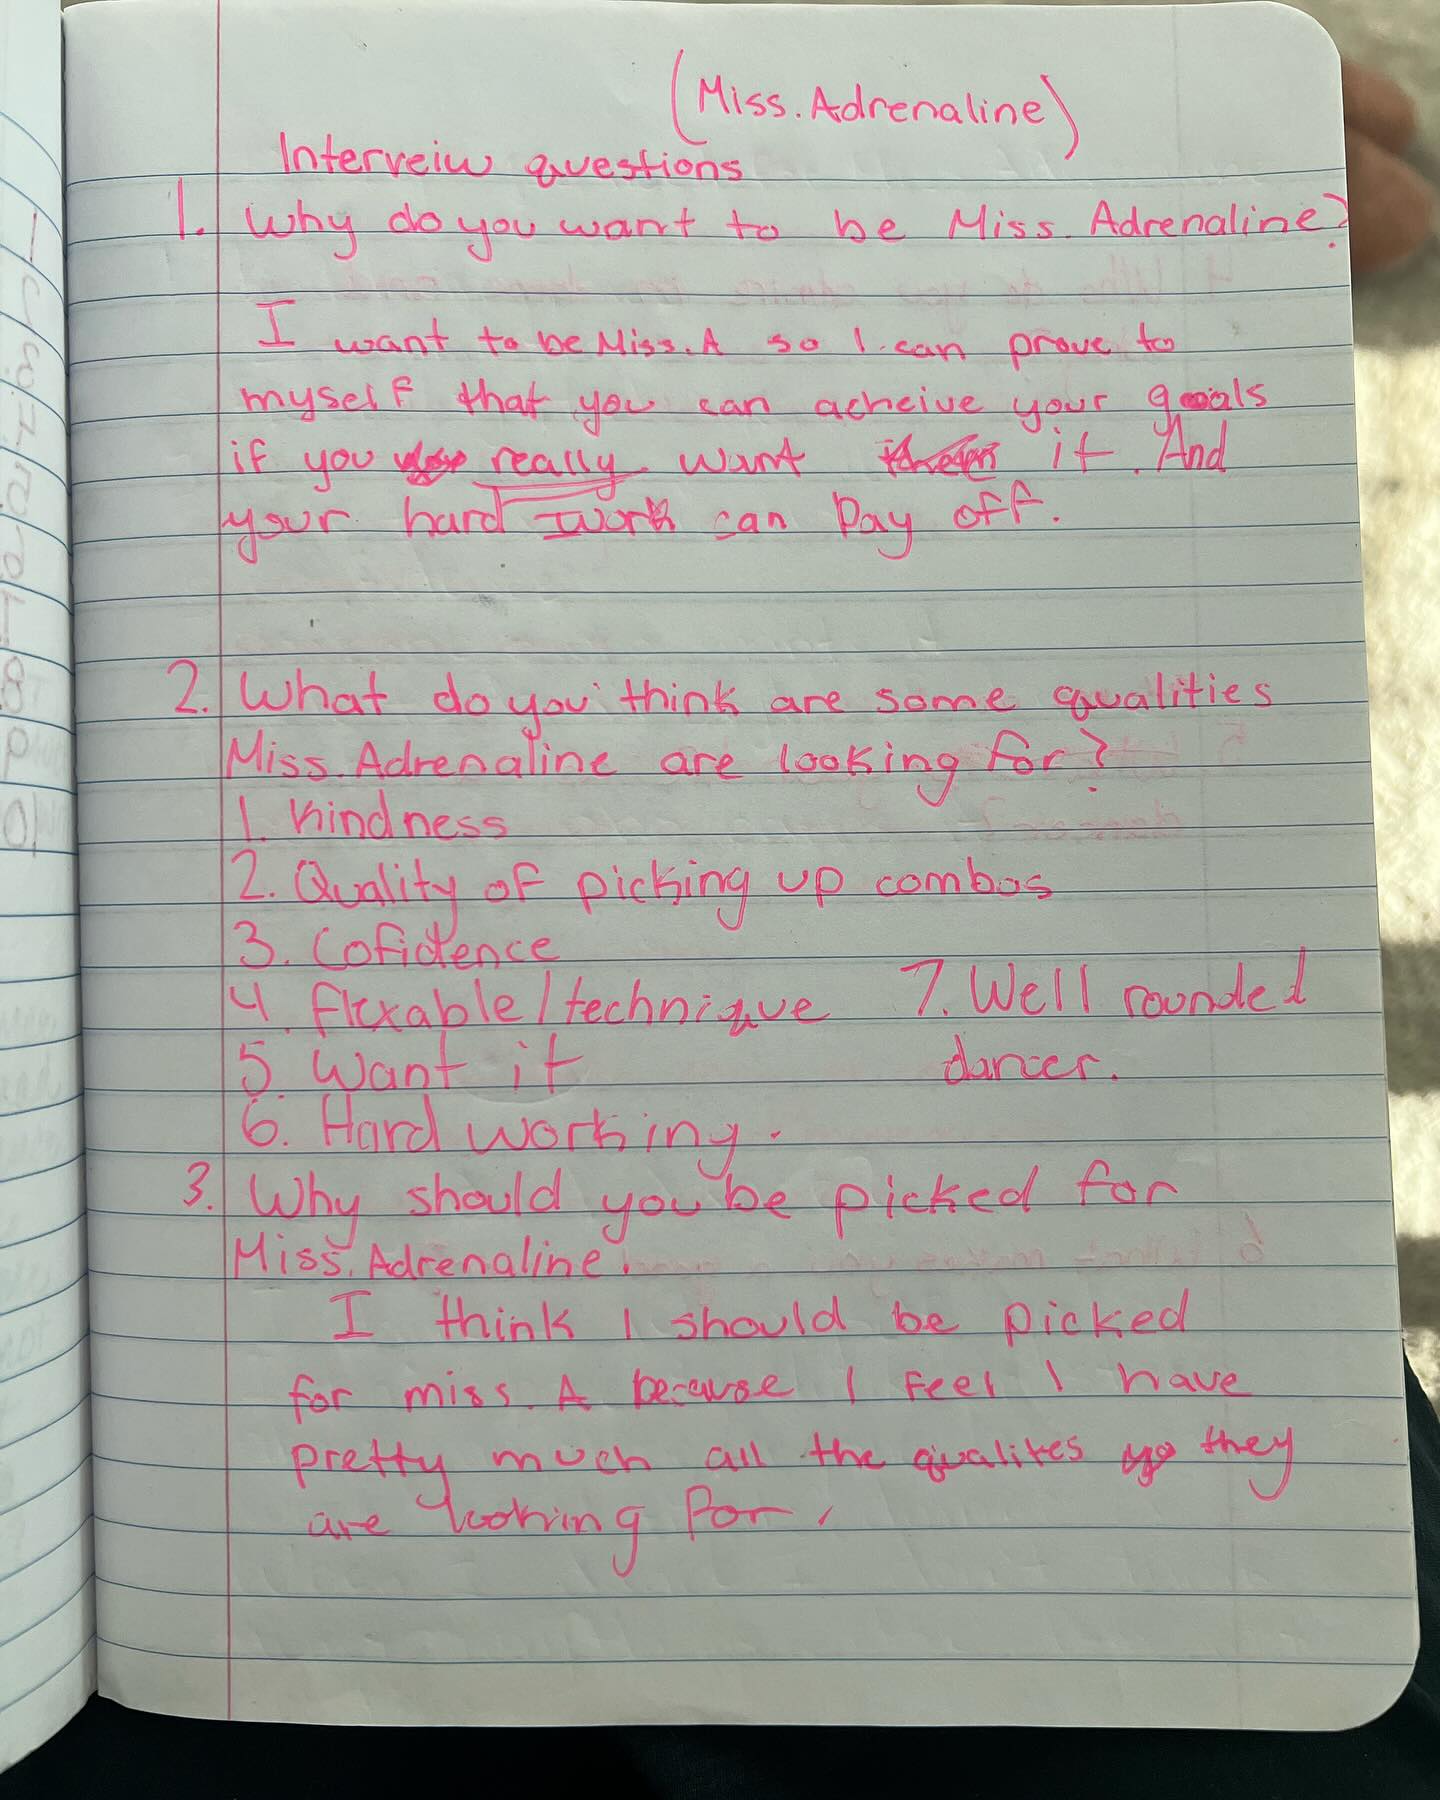 (Miss. Adrenaline)
Interveiw questions
1. Why do you want to be Miss. Adrenaline?
I want to be Miss. A so I can prove to
myself that you can acheive your goals
if you really want it. And
your hard work can Pay off.
2. What do you think are some qualities
Miss. Adrenaline are looking for?
1. Kindness
2. Quality of picking up combos
3. Cofidence
4. flexable/technique
5. Want it
6. Hard working.
7. Well rounded
dancer.
3. Why should you be picked for
Miss. Adrenaline.
I think I should be picked
for miss. A because I feel I have
pretty much all the qualites they
are looking for.